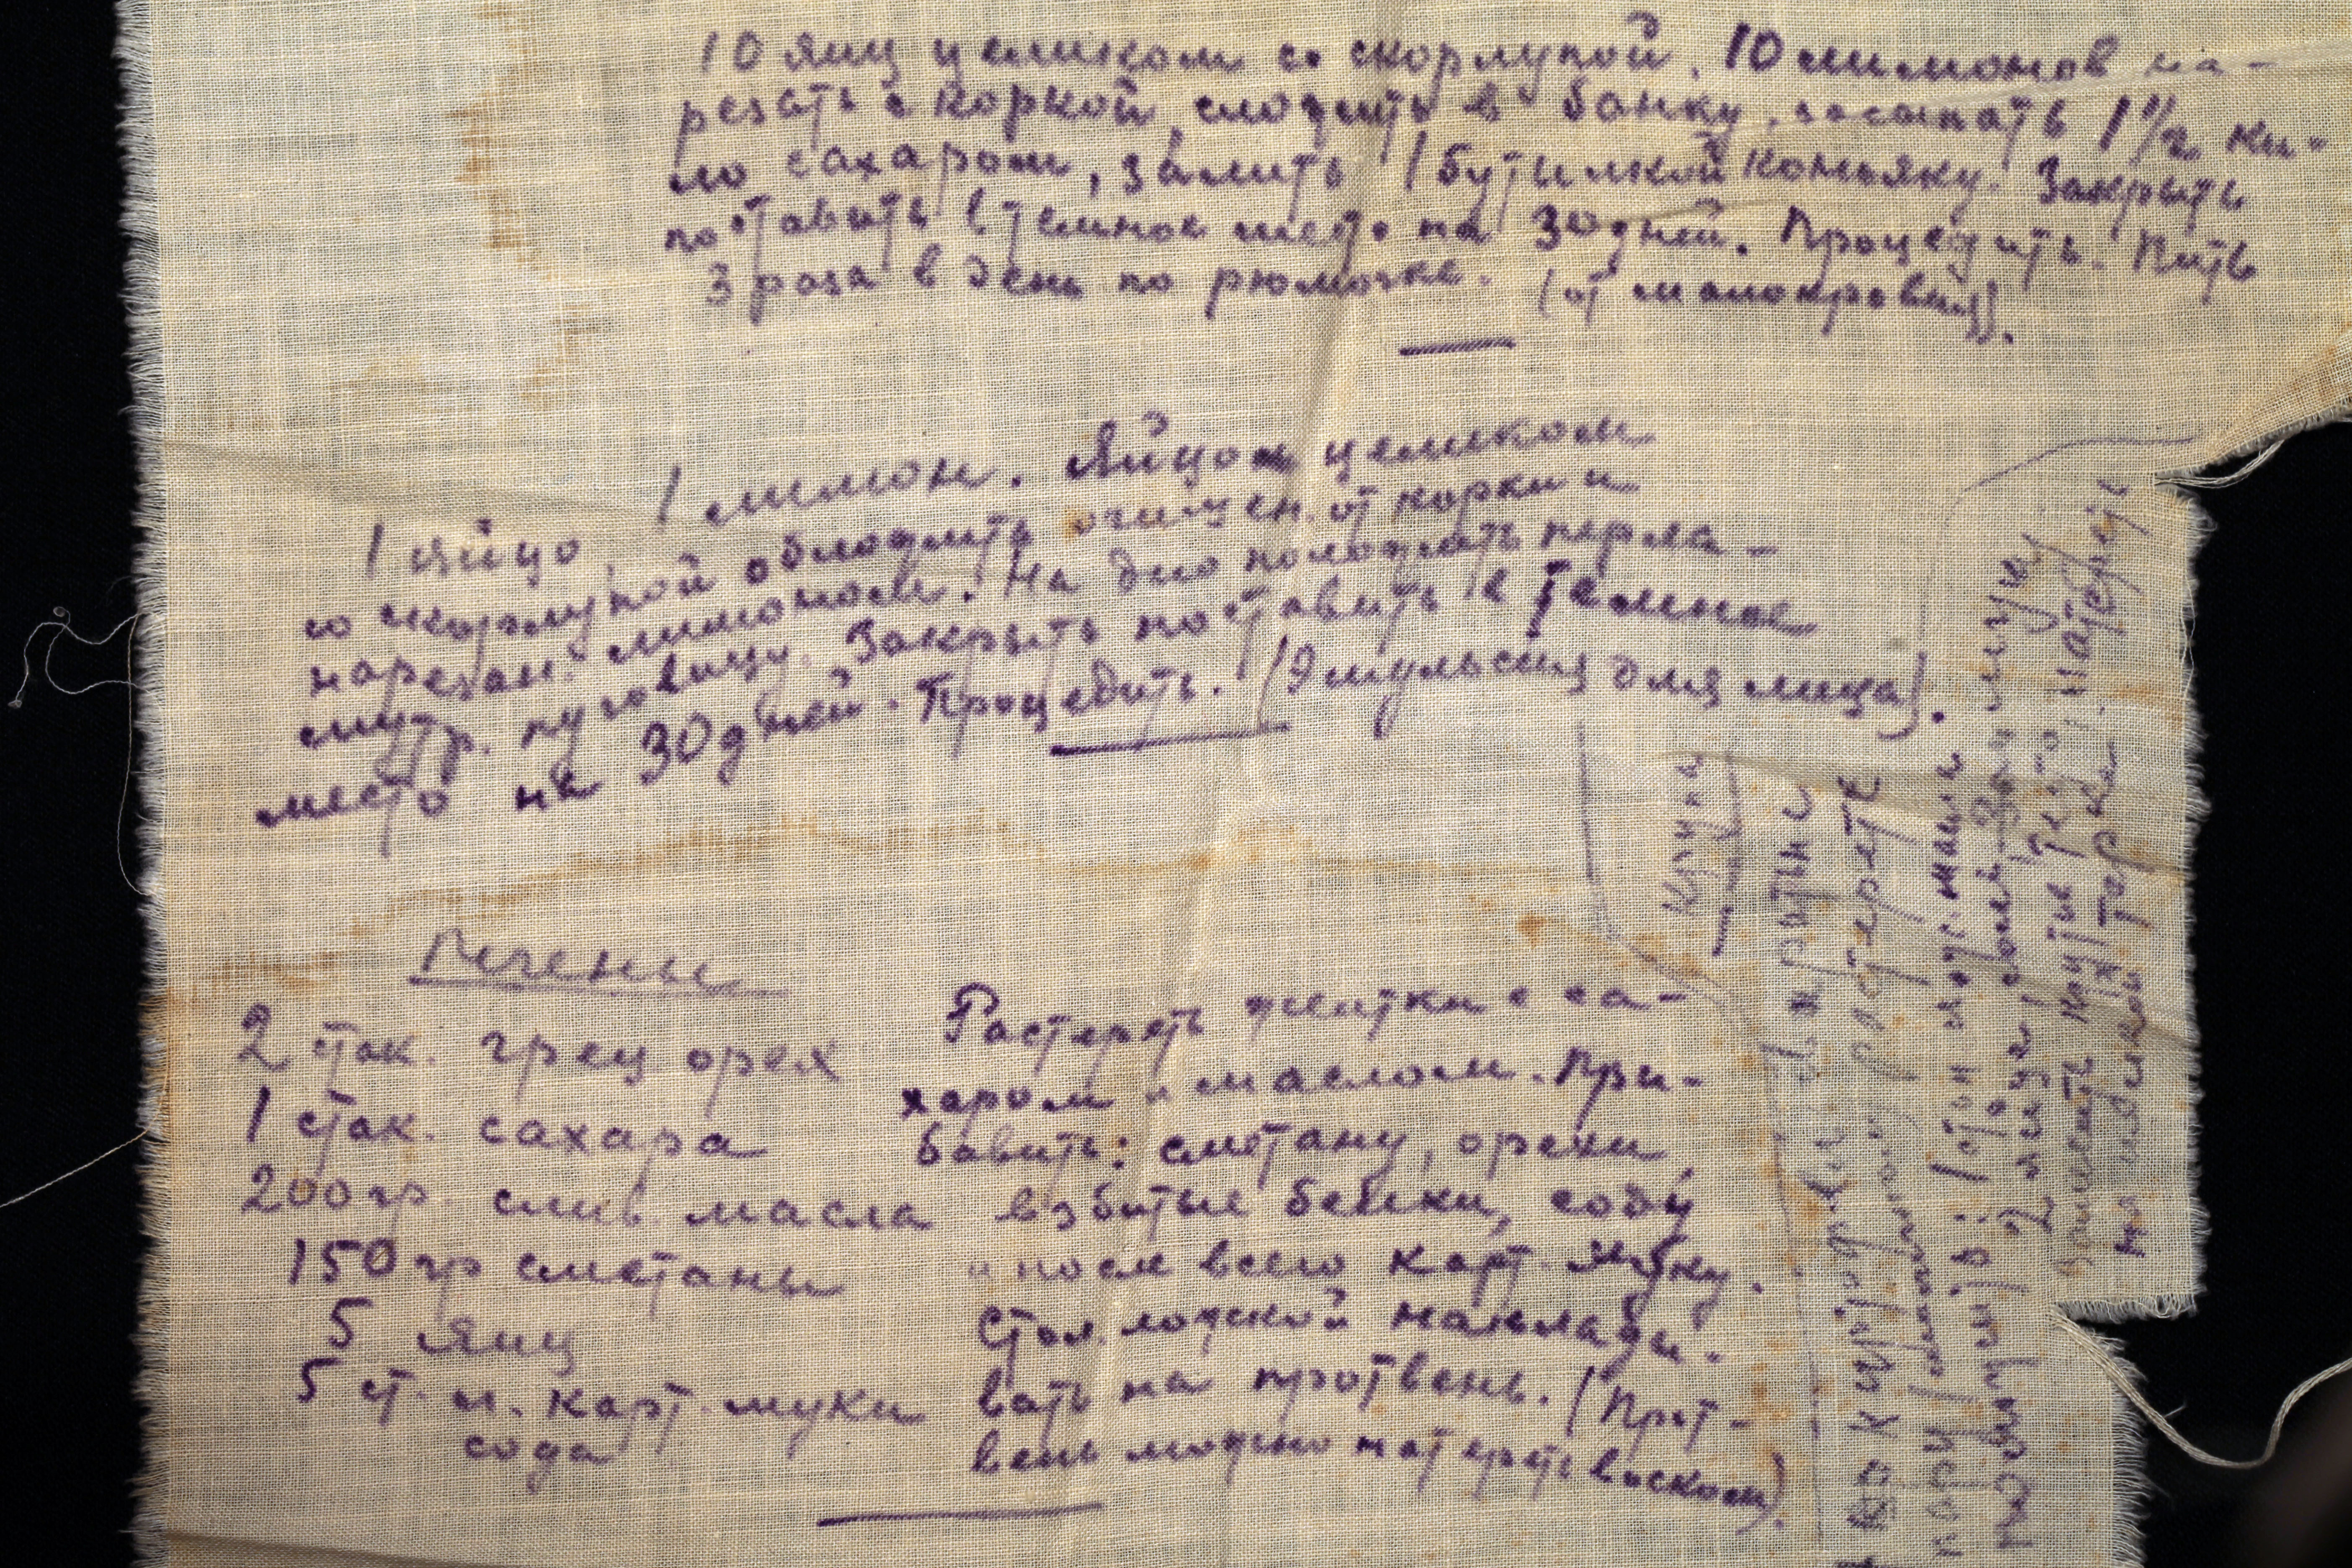 10 яиц целиком со скорлупой. 10 лимонов на-
резать с коркой, сложить в банку, засыпать 1 1/2 ки-
ло сахаром, залить 1 бутылкой коньяку. Закрыть
поставить в темное место на 30 дней. Процедить. Пить
3 раза в день по рюмочке. (от малокровия).
1 яйцо, 1 лимон. Яйцо целиком
со скорлупой обложить очищен. от корки и
нарезан. лимоном. На дно положить перла-
мутр. пуговицу. Закрыть поставить в темное
место на 30 дней. Процедить. (Эмульсия для лица).
Печенье
2 стак. грец орех
1 стак. сахара
200 гр. слив. масла
150 гр сметаны
5 яиц
5 ст. л. карт. муки
сода
Растереть желтки с са-
харом и маслом. При-
бавить: сметану, орехи,
взбитые белки, соду
и после всего карт. муку.
Стол. ложкой наклады-
вать на протвень. (Прот-
вень можно натереть воском).
растереть
1 стол лож.
2 яйца
Замесить крутое тесто, натереть
на терке